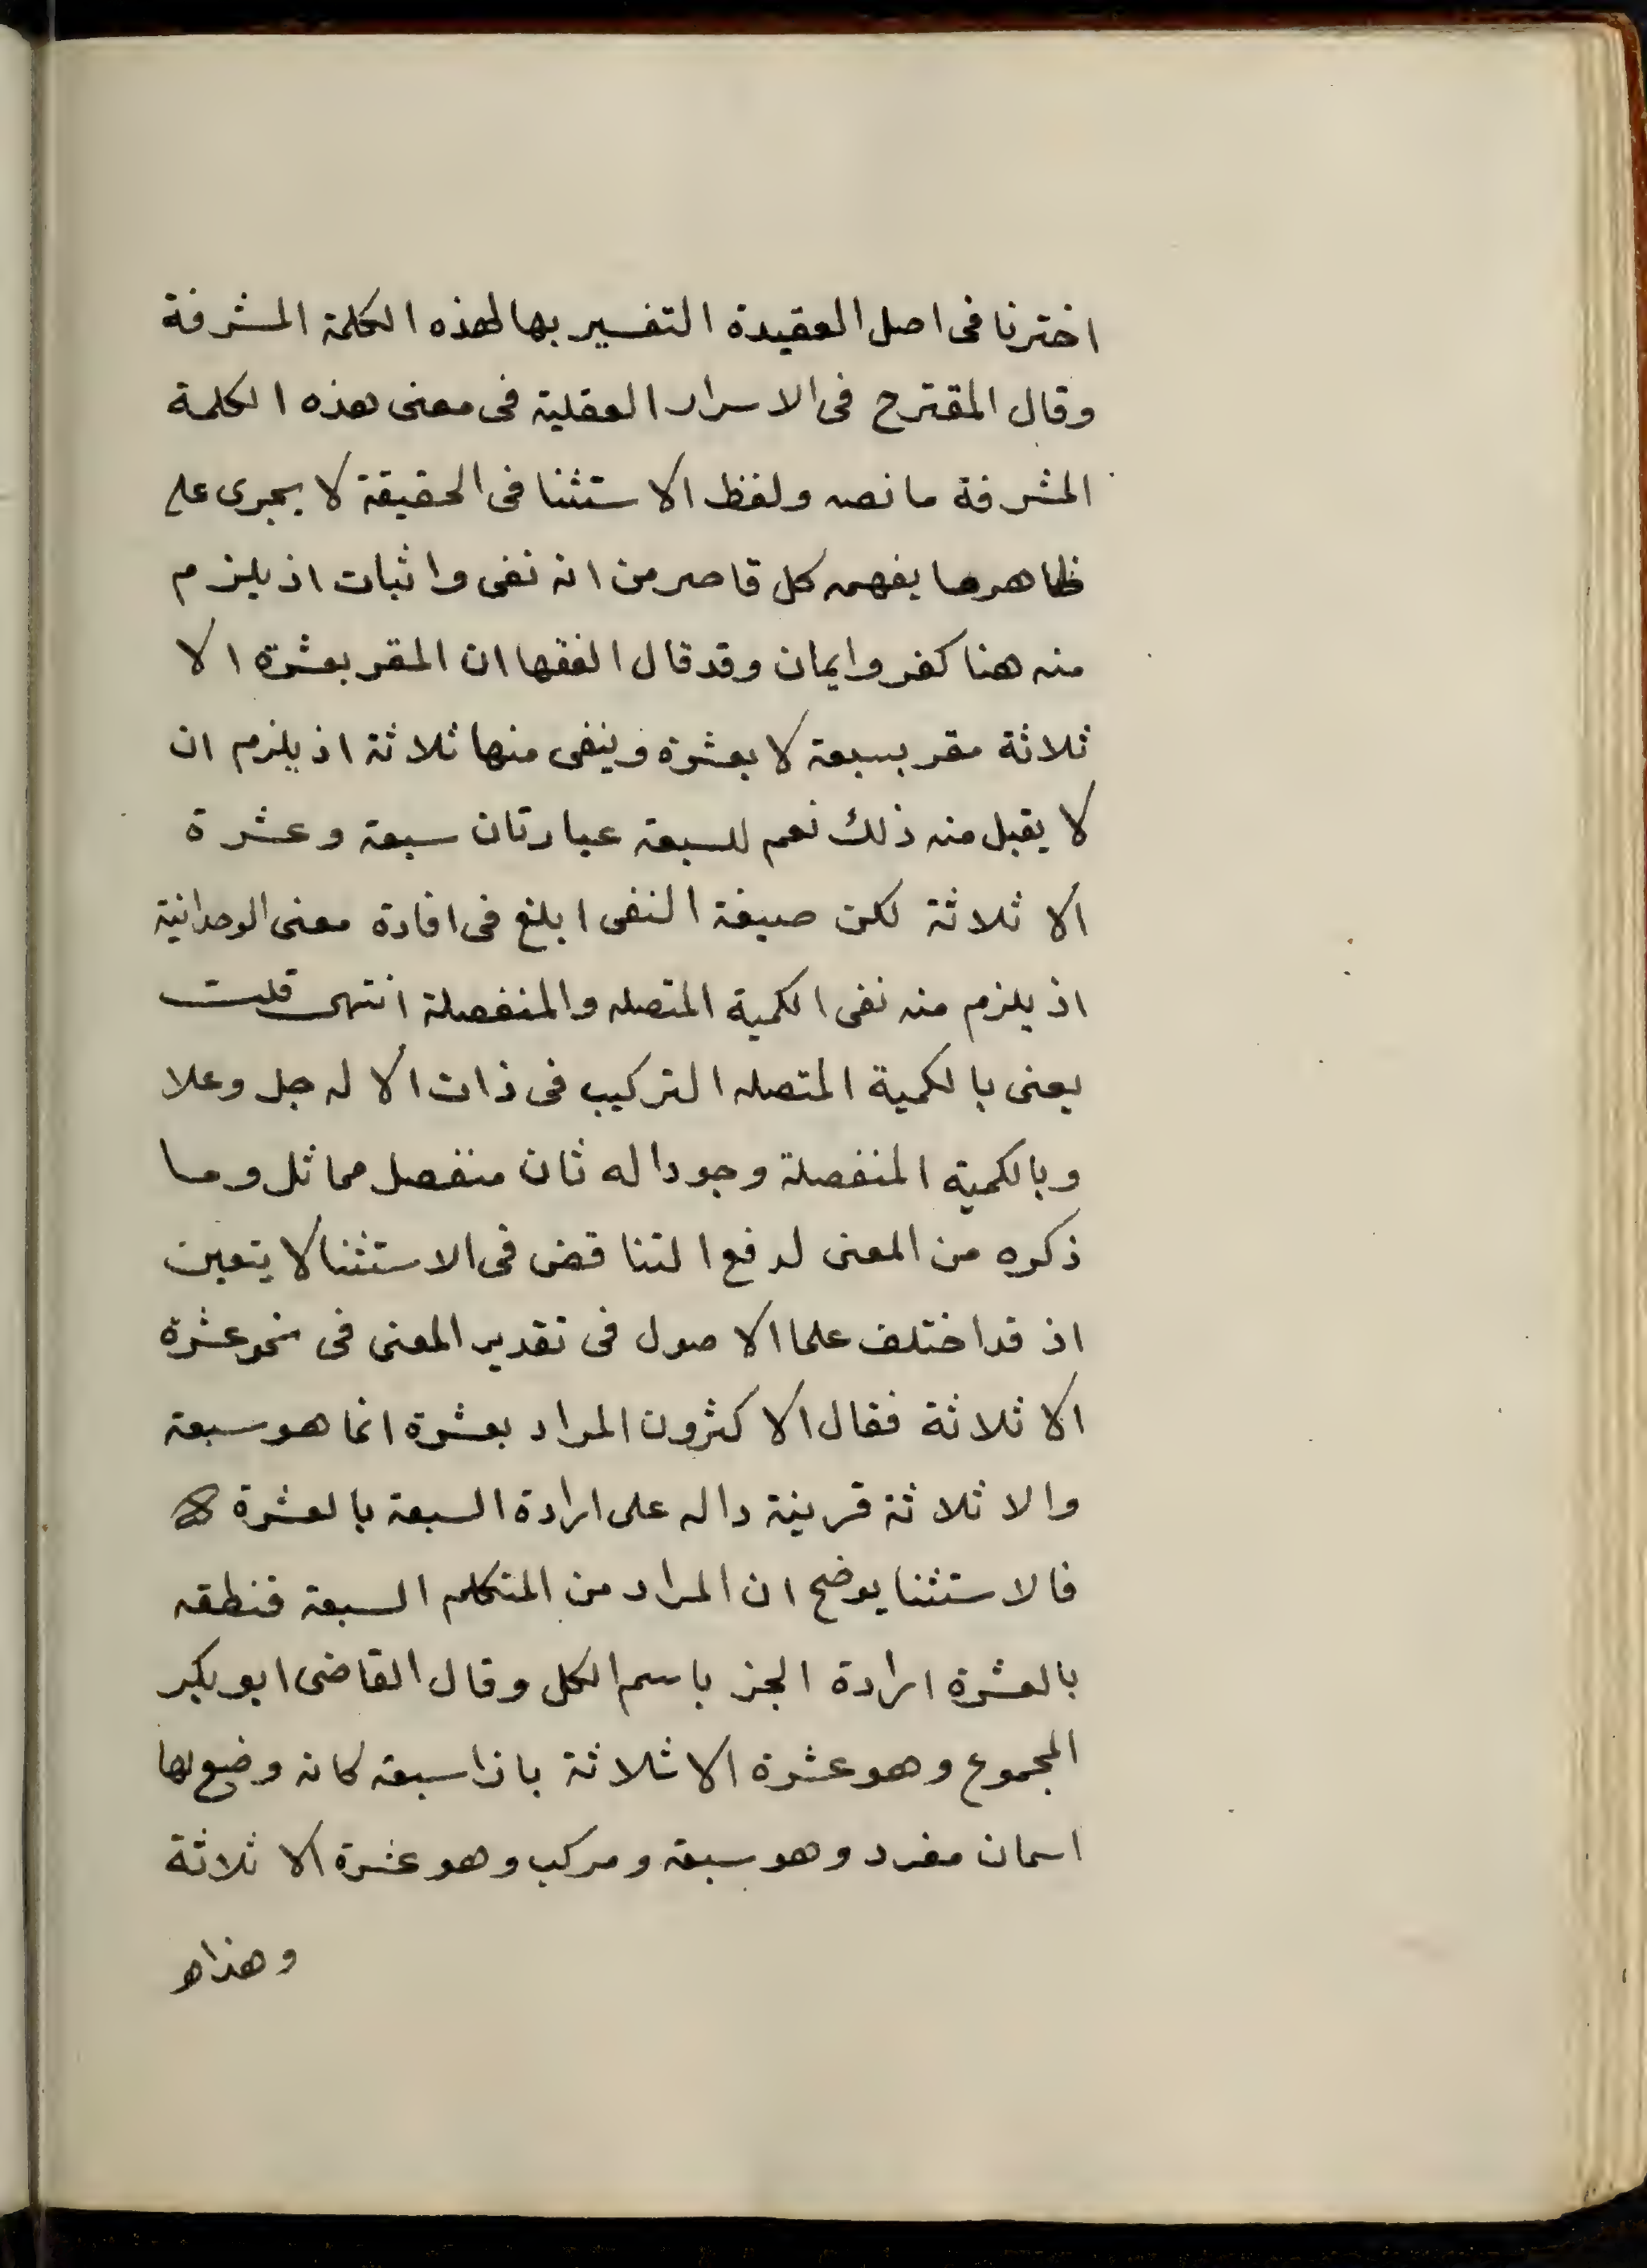 اخترنا فى اصل العقيدة التفسير بها لهذه الكلمة المشرفة
وقال المقترح فى الاسرار العقلية فى معنى هذه الكلمة
المشرفة ما نصه ولفظ الاستثنا فى الحقيقة لا يجرى على
ظاهر ما يفهمه كل قاصر من انه نفى واثبات اذ يلزم
منه هنا كفر وايمان وقد قال الفقها ان المقر بعشرة الا
ثلاثة مقر بسبعة لا بعشرة وينفى منها ثلاثة اذ يلزم ان
لا يقبل منه ذلك نعم للسبعة عبارتان سبعة وعشرة
الا ثلاثة لكن صيغة النفى ابلغ فى افادة معنى الوحدانية
اذ يلزم منه نفى الكمية المتصله والمنفصلة انتهى قلت
يعنى بالكمية المتصله التركيب فى ذات الاله جل وعلا
وبالكمية المنفصلة وجود اله ثان منفصل مماثل وما
ذكره من المعنى لدفع التناقض فى الاستثنا لا يتعين
اذ قد اختلف علما الاصول فى تقدير المعنى فى نحو عشرة
الا ثلاثة فقال الاكثرون المراد بعشرة انما هو سبعة
والا ثلاثة قرينة داله على ارادة السبعة بالعشرة
فالاستثنا يوضح ان المراد من المتكلم السبعة فنطقه
بالعشرة ارادة الجز باسم الكل وقال القاضى ابو بكر
المجموع وهو عشرة الا ثلاثة بازا سبعة كانه وضع لها
اسمان مفرد وهو سبعة ومركب وهو عشرة الا ثلاثة
وهذا هو